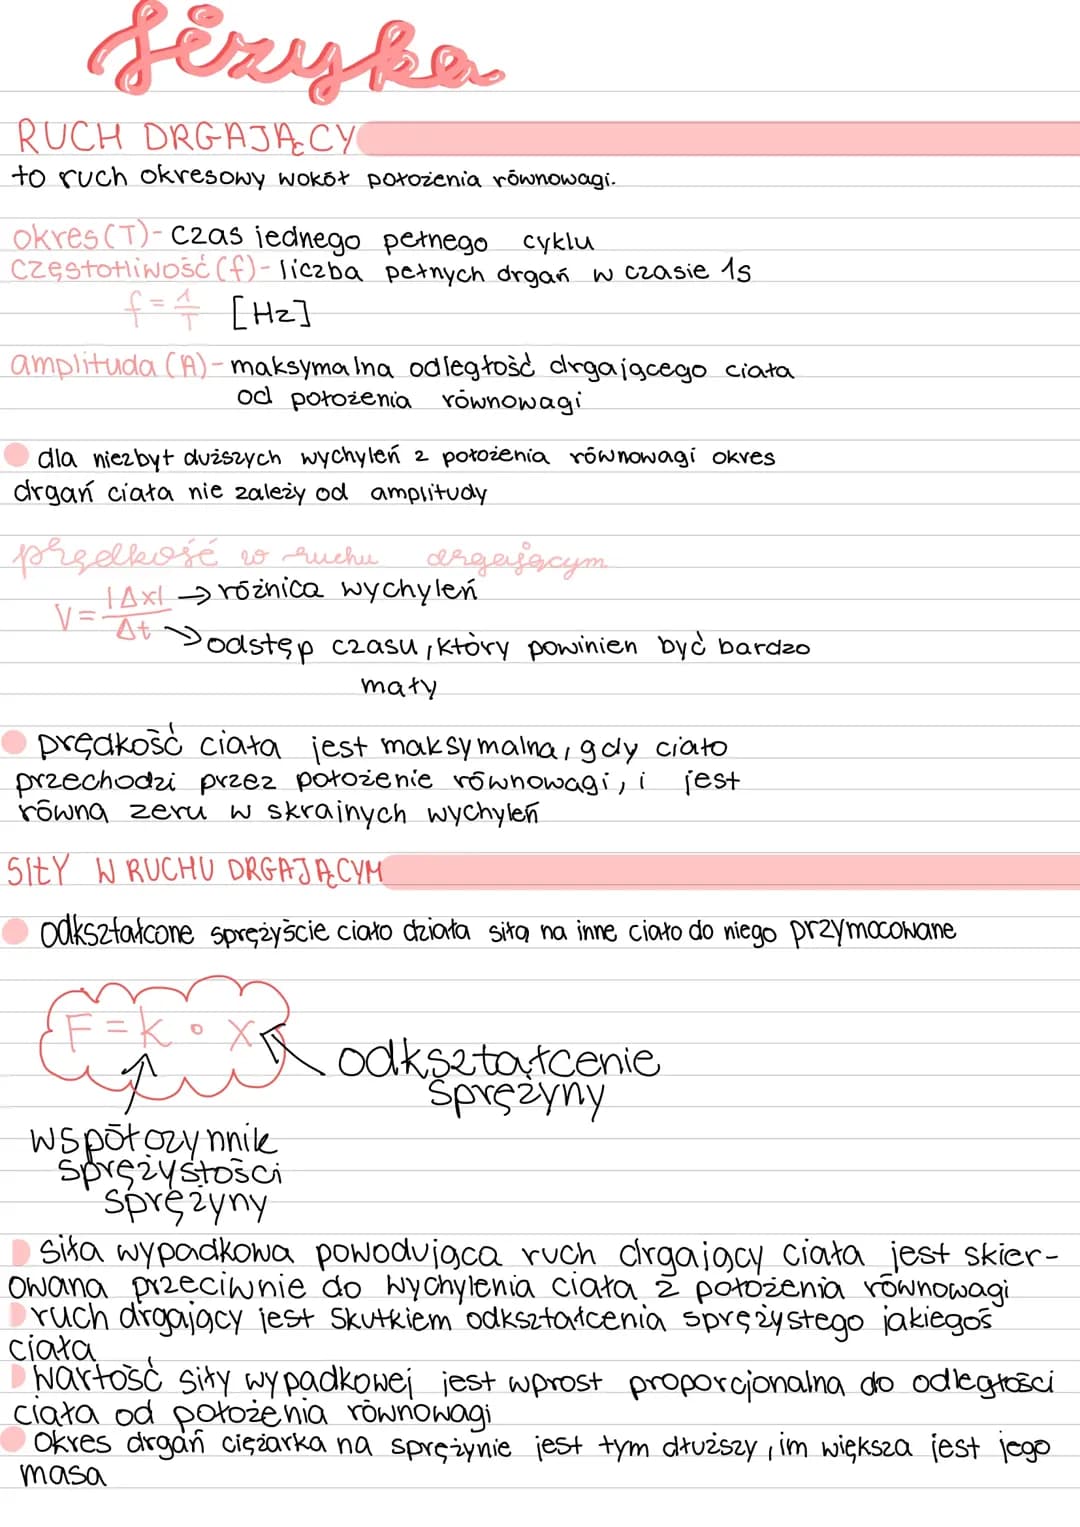 fizyka
RUCH DRGAJĄCY
to ruch okresowy wokół położenia równowagi.
okres (T) - czas jednego pełnego cyklu
częstotliwość (f) - liczba pełnych drgań w czasie 1s
f = 1/T [Hz]
amplituda (A) - maksymalna odległość drgającego ciała
od położenia równowagi
dla niezbyt duższych wychyleń z położenia równowagi okres
drgań ciała nie zależy od amplitudy
prędkość w ruchu drgającym
V = |Δx| / Δt → różnica wychyleń
→ odstęp czasu, który powinien być bardzo
mały
prędkość ciała jest maksymalna, gdy ciało
przechodzi przez położenie równowagi, i jest
równa zeru w skrajnych wychyleń
SIŁY W RUCHU DRGAJĄCYM
odkształcone sprężyście ciało działa siłą na inne ciało do niego przymocowane
F = k • x
odkształcenie
sprężyny
współczynnik
sprężystości
sprężyny
siła wypadkowa powodująca ruch drgający ciała jest skier-
owana przeciwnie do wychylenia ciała z położenia równowagi
ruch drgający jest skutkiem odkształcenia sprężystego jakiegoś
ciała
wartość siły wypadkowej jest wprost proporcjonalna do odległości
ciała od położenia równowagi
okres drgań ciężarka na sprężynie jest tym dłuższy, im większa jest jego
masa